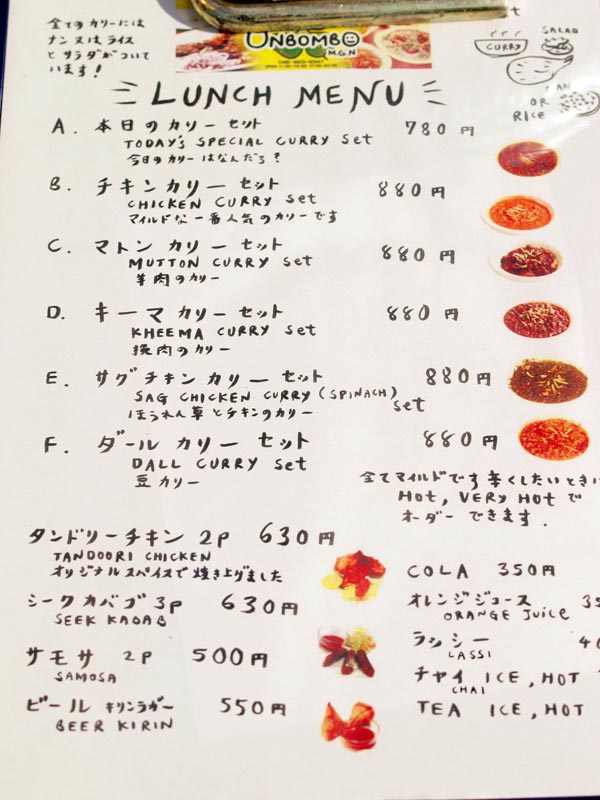 全てのカリーには
ナン又はライス
とサラダがついて
います!
UNBOMBO
M.G.N
CURRY
SALAD
NAN
OR
RICE
LUNCH MENU
A. 本日のカリーセット 780円
TODAY'S SPECIAL CURRY Set
今日のカリーはなんだろ?
B. チキンカリーセット 880円
CHICKEN CURRY Set
マイルドな一番人気のカリーです
C. マトンカリーセット 880円
MUTTON CURRY Set
羊肉のカリー
D. キーマカリーセット 880円
KHEEMA CURRY Set
挽肉のカリー
E. サグチキンカリーセット 880円
SAG CHICKEN CURRY (SPINACH) Set
ほうれん草とチキンのカリー
F. ダールカリーセット 880円
DALL CURRY Set
豆カリー
全てマイルドです辛くしたいときは
HOT, VERY HOTで
オーダーできます.
タンドリーチキン 2P 630円
TANDOORI CHICKEN
オリジナルスパイスで焼き上げました
シークカバブ 3P 630円
SEEK KABAB
サモサ 2P 500円
SAMOSA
ビール キリンラガー 550円
BEER KIRIN
COLA 350円
オレンジジュース 35
ORANGE JUICE
ラッシー 40
LASSI
チャイ ICE, HOT
CHAI
TEA ICE, HOT